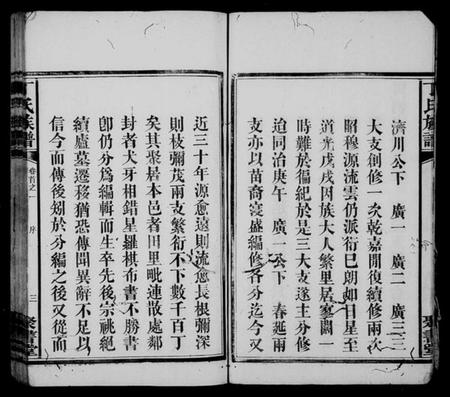 濟川公下 廣一 廣二 廣三三
大支創修一次乾嘉閒復續修兩次
昭穆源流雲仍派衍已朗如日星至
道光戊戌因族大人繁里居寥闊一
時難於徧紀於是三大支遂主分修
迨同治庚午 廣一公下 春延兩
支亦以苗裔寖盛編修各分迄今又
近三十年源愈遠則流愈長根彌深
則枝彌茂兩支繁衍不下數千百丁
矣其聚居本邑者田里毗連散處鄰
封者犬牙相錯星羅棋布書不勝書
卽仍分爲編輯而生卒先後宗祧絕
續廬墓遷移猶恐傳聞異辭不足以
信今而傳後矧於分編之後又從而
氏族譜
卷首之一 序 三